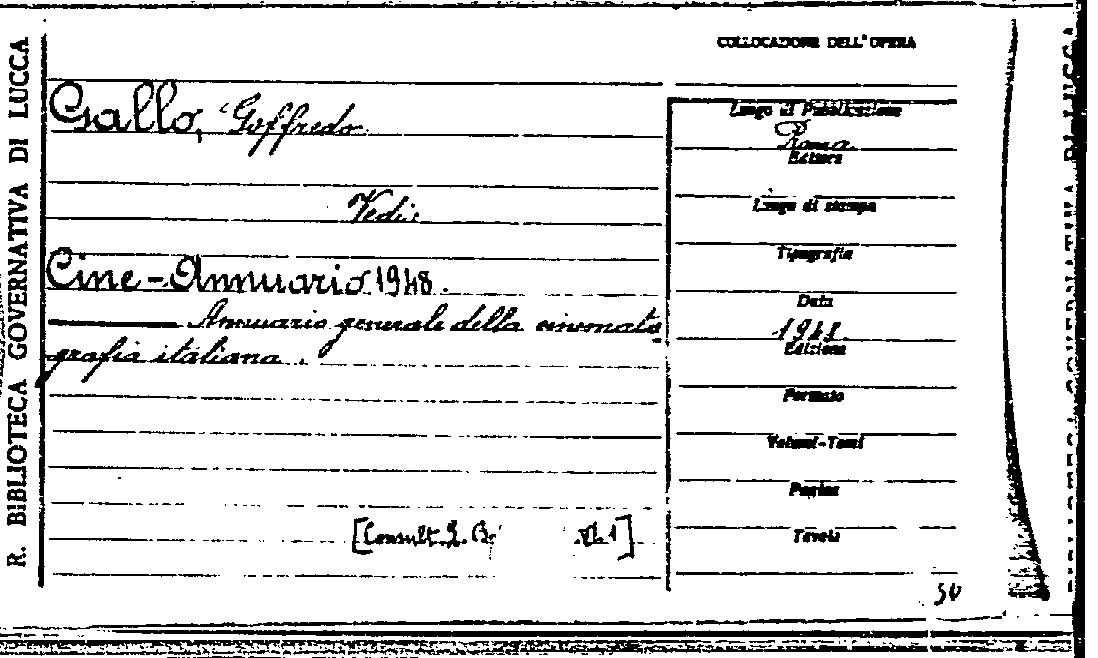 R. BIBLIOTECA GOVERNATIVA DI LUCCA
COLLOCAZIONE DELL'OPERA
Gallo, Goffredo
Vedi:
Cine-Annuario 1948.
Annuario generale della cinemato
grafia italiana.
[Consult. 2. B.
Luogo di Pubblicazione
Roma
Editore
Luogo di stampa
Tipografia
Data
1948.
Edizione
Formato
Volumi-Tomi
Pagine
Tavole